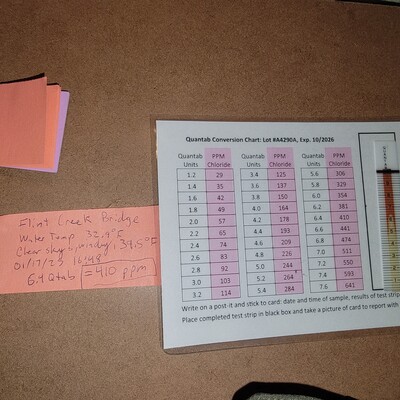 Flint Creek Bridge
Water Temp. 32.9°F
Clear sky, windy, 39.5°F
01/17/23 16:48
6.4 Qtab = 410 ppm
Quantab Conversion Chart: Lot #A4290A, Exp. 10/2026
Quantab Units PPM Chloride Quantab Units PPM Chloride Quantab Units PPM Chloride
1.2 29 3.4 125 5.6 306
1.4 35 3.6 137 5.8 329
1.6 42 3.8 150 6.0 354
1.8 49 4.0 164 6.2 381
2.0 57 4.2 178 6.4 410
2.2 65 4.4 193 6.6 441
2.4 74 4.6 209 6.8 474
2.6 83 4.8 226 7.0 511
2.8 92 5.0 244 7.2 550
3.0 103 5.2 264 7.4 593
3.2 114 5.4 284 7.6 641
Write on a post-it and stick to card: date and time of sample, results of test strip
Place completed test strip in black box and take a picture of card to report with